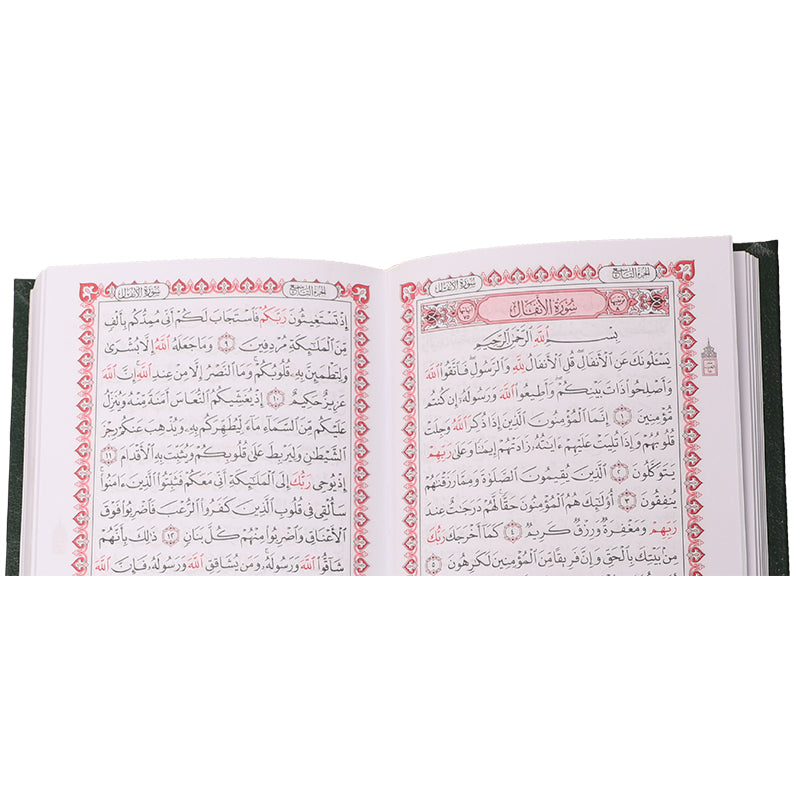 سُورَةُ الأَنفَالِ
الجُزءُ التَّاسِعُ
سُورَةُ الأَنفَالِ
بِسْمِ اللَّهِ الرَّحْمَٰنِ الرَّحِيمِ
يَسْـَٔلُونَكَ عَنِ ٱلْأَنفَالِ ۖ قُلِ ٱلْأَنفَالُ لِلَّهِ وَٱلرَّسُولِ ۖ فَٱتَّقُوا۟ ٱللَّهَ
وَأَصْلِحُوا۟ ذَاتَ بَيْنِكُمْ ۖ وَأَطِيعُوا۟ ٱللَّهَ وَرَسُولَهُۥٓ إِن كُنتُم
مُّؤْمِنِينَ ١ إِنَّمَا ٱلْمُؤْمِنُونَ ٱلَّذِينَ إِذَا ذُكِرَ ٱللَّهُ وَجِلَتْ
قُلُوبُهُمْ وَإِذَا تُلِيَتْ عَلَيْهِمْ ءَايَٰتُهُۥ زَادَتْهُمْ إِيمَٰنًا وَعَلَىٰ رَبِّهِمْ
يَتَوَكَّلُونَ ٢ ٱلَّذِينَ يُقِيمُونَ ٱلصَّلَوٰةَ وَمِمَّا رَزَقْنَٰهُمْ
يُنفِقُونَ ٣ أُو۟لَٰٓئِكَ هُمُ ٱلْمُؤْمِنُونَ حَقًّا ۚ لَّهُمْ دَرَجَٰتٌ عِندَ
رَبِّهِمْ وَمَغْفِرَةٌ وَرِزْقٌ كَرِيمٌ ٤ كَمَآ أَخْرَجَكَ رَبُّكَ
مِنۢ بَيْتِكَ بِٱلْحَقِّ وَإِنَّ فَرِيقًا مِّنَ ٱلْمُؤْمِنِينَ لَكَٰرِهُونَ ٥
الجُزءُ التَّاسِعُ
سُورَةُ الأَنفَالِ
إِذْ تَسْتَغِيثُونَ رَبَّكُمْ فَٱسْتَجَابَ لَكُمْ أَنِّى مُمِدُّكُم بِأَلْفٍ
مِّنَ ٱلْمَلَٰٓئِكَةِ مُرْدِفِينَ ٩ وَمَا جَعَلَهُ ٱللَّهُ إِلَّا بُشْرَىٰ
وَلِتَطْمَئِنَّ بِهِۦ قُلُوبُكُمْ ۚ وَمَا ٱلنَّصْرُ إِلَّا مِنْ عِندِ ٱللَّهِ ۚ إِنَّ ٱللَّهَ
عَزِيزٌ حَكِيمٌ ١٠ إِذْ يُغَشِّيكُمُ ٱلنُّعَاسَ أَمَنَةً مِّنْهُ وَيُنَزِّلُ
عَلَيْكُم مِّنَ ٱلسَّمَآءِ مَآءً لِّيُطَهِّرَكُم بِهِۦ وَيُذْهِبَ عَنكُمْ رِجْزَ
ٱلشَّيْطَٰنِ وَلِيَرْبِطَ عَلَىٰ قُلُوبِكُمْ وَيُثَبِّتَ بِهِ ٱلْأَقْدَامَ ١١
إِذْ يُوحِى رَبُّكَ إِلَى ٱلْمَلَٰٓئِكَةِ أَنِّى مَعَكُمْ فَثَبِّتُوا۟ ٱلَّذِينَ ءَامَنُوا۟
سَأُلْقِى فِى قُلُوبِ ٱلَّذِينَ كَفَرُوا۟ ٱلرُّعْبَ فَٱضْرِبُوا۟ فَوْقَ
ٱلْأَعْنَاقِ وَٱضْرِبُوا۟ مِنْهُمْ كُلَّ بَنَانٍ ١٢ ذَٰلِكَ بِأَنَّهُمْ
شَآقُّوا۟ ٱللَّهَ وَرَسُولَهُۥ ۚ وَمَن يُشَاقِقِ ٱللَّهَ وَرَسُولَهُۥ فَإِنَّ ٱللَّهَ